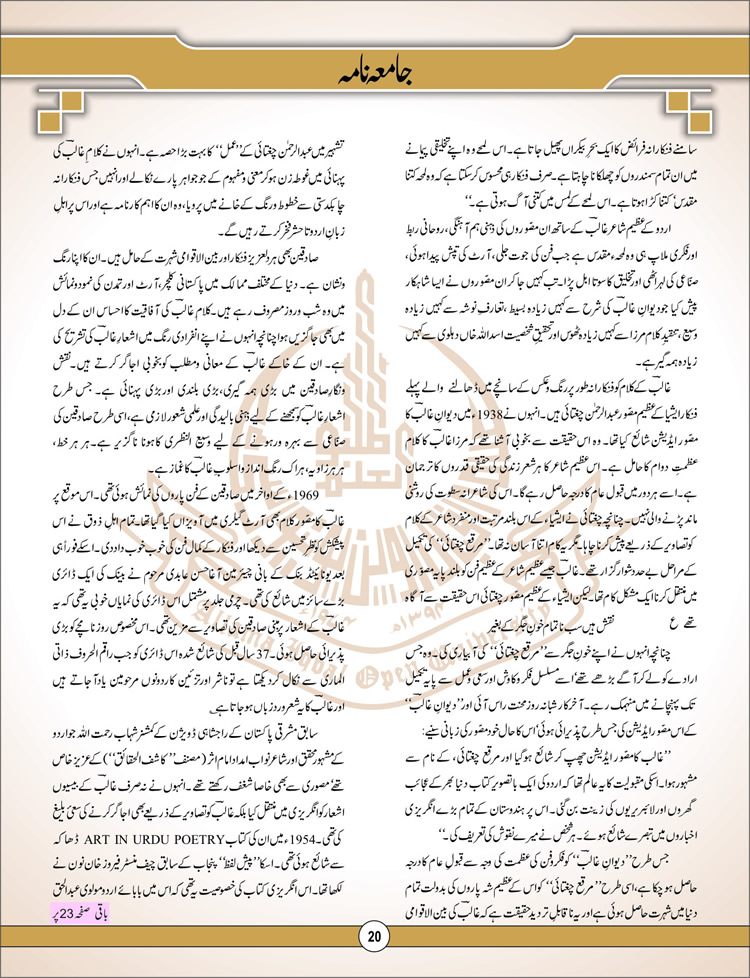 جامعہ نامہ
سامنے فنکارانہ فرائض کا ایک بحرِ بیکراں پھیل جاتا ہے۔ اس لمحے وہ اپنے تخلیقی پیمانے
میں ان تمام سمندروں کو چھلکانا چاہتا ہے۔ صرف فنکار ہی محسوس کرسکتا ہے کہ وہ لمحہ کتنا
مقدس، کتنا کڑا ہوتا ہے۔ اس لمحے کے لمس میں کتنی آگ ہوتی ہے۔‘‘
اردو کے عظیم شاعر غالبؔ کے ساتھ ان مصوروں کی ذہنی ہم آہنگی، روحانی ربط
اور فکری ملاپ ہی وہ لمحہء مقدس ہے جب فن کی جوت جلی، آرٹ کی تپش پیدا ہوئی،
صناعی کی لہر اٹھی اور تخلیق کا سوتا ابل پڑا۔ تب کہیں جا کر ان مصوروں نے ایسا شاہکار
پیش کیا جو دیوانِ غالبؔ کی شرح سے کہیں زیادہ بسیط، تعارفِ نوشہ سے کہیں زیادہ
وسیع، تنقیدِ کلام مرزا سے کہیں زیادہ ٹھوس اور تحقیقِ شخصیت اسد اللہ خاں دہلوی سے کہیں
زیادہ ہمہ گیر ہے۔
غالبؔ کے کلام کو فنکارانہ طور پر رنگ و عکس کے سانچے میں ڈھالنے والے پہلے
فنکار ایشیا کے عظیم مصور عبدالرحمٰن چغتائی ہیں۔ انہوں نے 1938ء میں دیوانِ غالبؔ کا
مصور ایڈیشن شائع کیا تھا۔ وہ اس حقیقت سے بخوبی آشنا تھے کہ مرزا غالبؔ کا کلام
عظمتِ دوام کا حامل ہے۔ اس عظیم شاعر کا ہر شعر زندگی کی حقیقی قدروں کا ترجمان
ہے۔ اسے ہر دور میں قبول عام کا درجہ حاصل رہے گا۔ اس کی شاعرانہ سطوت کی روشنی
ماند پڑنے والی نہیں۔ چنانچہ چغتائی نے ایشیاء کے اس بلند مرتبت اور منفرد شاعر کے کلام
کو تصاویر کے ذریعے پیش کرنا چاہا۔ مگر یہ کام اتنا آسان نہ تھا۔ ’’مرقع چغتائی‘‘ کی تکمیل
کے مراحل بے حد دشوار گزار تھے۔ غالبؔ جیسے عظیم شاعر کے عظیم فن کو بلند پایہ مصوری
میں منتقل کرنا ایک مشکل کام تھا۔ لیکن ایشیاء کے عظیم مصور چغتائی اس حقیقت سے آگاہ
تھے ع نقش ہیں سب ناتمام خونِ جگر کے بغیر
چنانچہ انہوں نے اپنے خونِ جگر سے ’’مرقع چغتائی‘‘ کی آبیاری کی۔ وہ جس
ارادے کو لے کر آگے بڑھے تھے، اسے مسلسل فکر و کاوش اور سعی و عمل سے پایہ تکمیل
تک پہنچانے میں منہمک رہے۔ آخر کار شبانہ روز محنت راس آئی اور ’’دیوانِ غالبؔ‘‘
کے اس مصور ایڈیشن کی جس طرح پذیرائی ہوئی، اس کا حال خود مصور کی زبانی سنیے:
’’غالب کا مصور ایڈیشن چھپ کر شائع ہوگیا اور مرقع چغتائی، کے نام سے
مشہور ہوا۔ اسکی مقبولیت کا یہ عالم تھا کہ اردو کی ایک با تصویر کتاب دنیا بھر کے عجائب
گھروں اور لائبریریوں کی زینت بن گئی۔ اس پر ہندوستان کے تمام بڑے انگریزی
اخباروں میں تبصرے شائع ہوئے۔ ہر شخص نے میرے نقوش کی تعریف کی۔‘‘
جس طرح ’’دیوانِ غالبؔ‘‘ کو فکر و فن کی عظمت کی وجہ سے قبول عام کا درجہ
حاصل ہو چکا ہے، اسی طرح ’’مرقع چغتائی‘‘ کو اس کے عظیم شہ پاروں کی بدولت تمام
دنیا میں شہرت حاصل ہوئی ہے اور یہ ناقابلِ تردید حقیقت ہے کہ غالبؔ کی بین الاقوامی
تشہیر میں عبدالرحمٰن چغتائی کے ’’عمل‘‘ کا بہت بڑا حصہ ہے۔ انہوں نے کلام غالبؔ کی
پہنائی میں غوطہ زن ہو کر معنی و مفہوم کے جو جواہر پارے نکالے اور انہیں جس فنکارانہ
چابکدستی سے خطوط و رنگ کے خانے میں پرویا، وہ ان کا اہم کارنامہ ہے اور اس پر اہلِ
زبانِ اردو تا حشر فخر کرتے رہیں گے۔
صادقین بھی ہر لعزیز فنکار اور بین الاقوامی شہرت کے حامل ہیں۔ ان کا اپنا رنگ
ونشان ہے۔ دنیا کے مختلف ممالک میں پاکستانی کلچر، آرٹ اور تمدن کی نمود و نمائش
میں وہ شب و روز مصروف رہے ہیں۔ کلام غالبؔ کی آفاقیت کا احساس ان کے دل
میں بھی جاگزیں ہوا چنانچہ انہوں نے اپنے انفرادی رنگ میں اشعارِ غالبؔ کی تشریح کی
ہے۔ ان کے خاکے غالبؔ کے معانی و مطلب کو بخوبی اجاگر کرتے ہیں۔ نقش
ونگارِ صادقین میں بڑی ہمہ گیری، بڑی بلندی اور بڑی پہنائی ہے۔ جس طرح
اشعار غالبؔ کو سمجھنے کے لیے ذہنی بالیدگی اور علمی شعور لازمی ہے، اسی طرح صادقین کی
صناعی سے بہرہ ور ہونے کے لیے وسیع النظری کا ہونا ناگزیر ہے۔ ہر ہر خط،
ہر ہر زاویہ، ہر اک رنگ انداز و اسلوب غالبؔ کا غماز ہے۔
1969ء کے اواخر میں صادقین کے فن پاروں کی نمائش ہوئی تھی۔ اس موقع پر
غالبؔ کا مصور کلام بھی آرٹ گیلری میں آویزاں کیا گیا تھا۔ تمام اہلِ ذوق نے اس
پیشکش کو نظرِ تحسین سے دیکھا اور فنکار کے کمال فن کی خوب خوب داد دی۔ اسکے فوراً ہی
بعد یونائیٹڈ بنک کے بانی چیئرمین آغا حسن عابدی مرحوم نے بینک کی ایک ڈائری
بڑے سائز میں شائع کی تھی۔ چرمی جلد پر مشتمل اس ڈائری کی نمایاں خوبی یہ تھی کہ یہ
غالبؔ کے اشعار پر مبنی صادقین کی تصاویر سے مزین تھی۔ اس مخصوص روزنامچے کو بڑی
پذیرائی حاصل ہوئی۔ 37 سال قبل کی شائع شدہ اس ڈائری کو جب راقم الحروف ذاتی
الماری سے نکال کر دیکھتا ہے تو ناشر اور تزئین کار دونوں مرحومین یاد آجاتے ہیں
اور غالبؔ کا یہ شعر ورد زباں ہو جاتا ہے۔
سابق مشرقی پاکستان کے راجشاہی ڈویژن کے کمشنر شہاب رحمت اللہ جو اردو
کے مشہور محقق اور شاعر نواب امداد امام اثر (مصنف ’’کاشف الحقائق‘‘) کے عزیز خاص
تھے، مصوری سے بھی خاصا شغف رکھتے تھے۔ انہوں نے نہ صرف غالبؔ کے بیسیوں
اشعار کو انگریزی میں منتقل کیا بلکہ غالبؔ کو تصاویر کے ذریعے بھی اجاگر کرنے کی سعیٔ بلیغ
کی تھی۔ 1954ء میں ان کی کتاب ART IN URDU POETRY ڈھاکہ
سے شائع ہوئی تھی۔ اسکا ’’پیش لفظ‘‘ پنجاب کے سابق چیف منسٹر فیروز خان نون نے
لکھا تھا۔ اس انگریزی کتاب کی خصوصیت یہ تھی کہ اس میں بابائے اردو مولوی عبدالحق
باقی صفحہ 23 پر
20